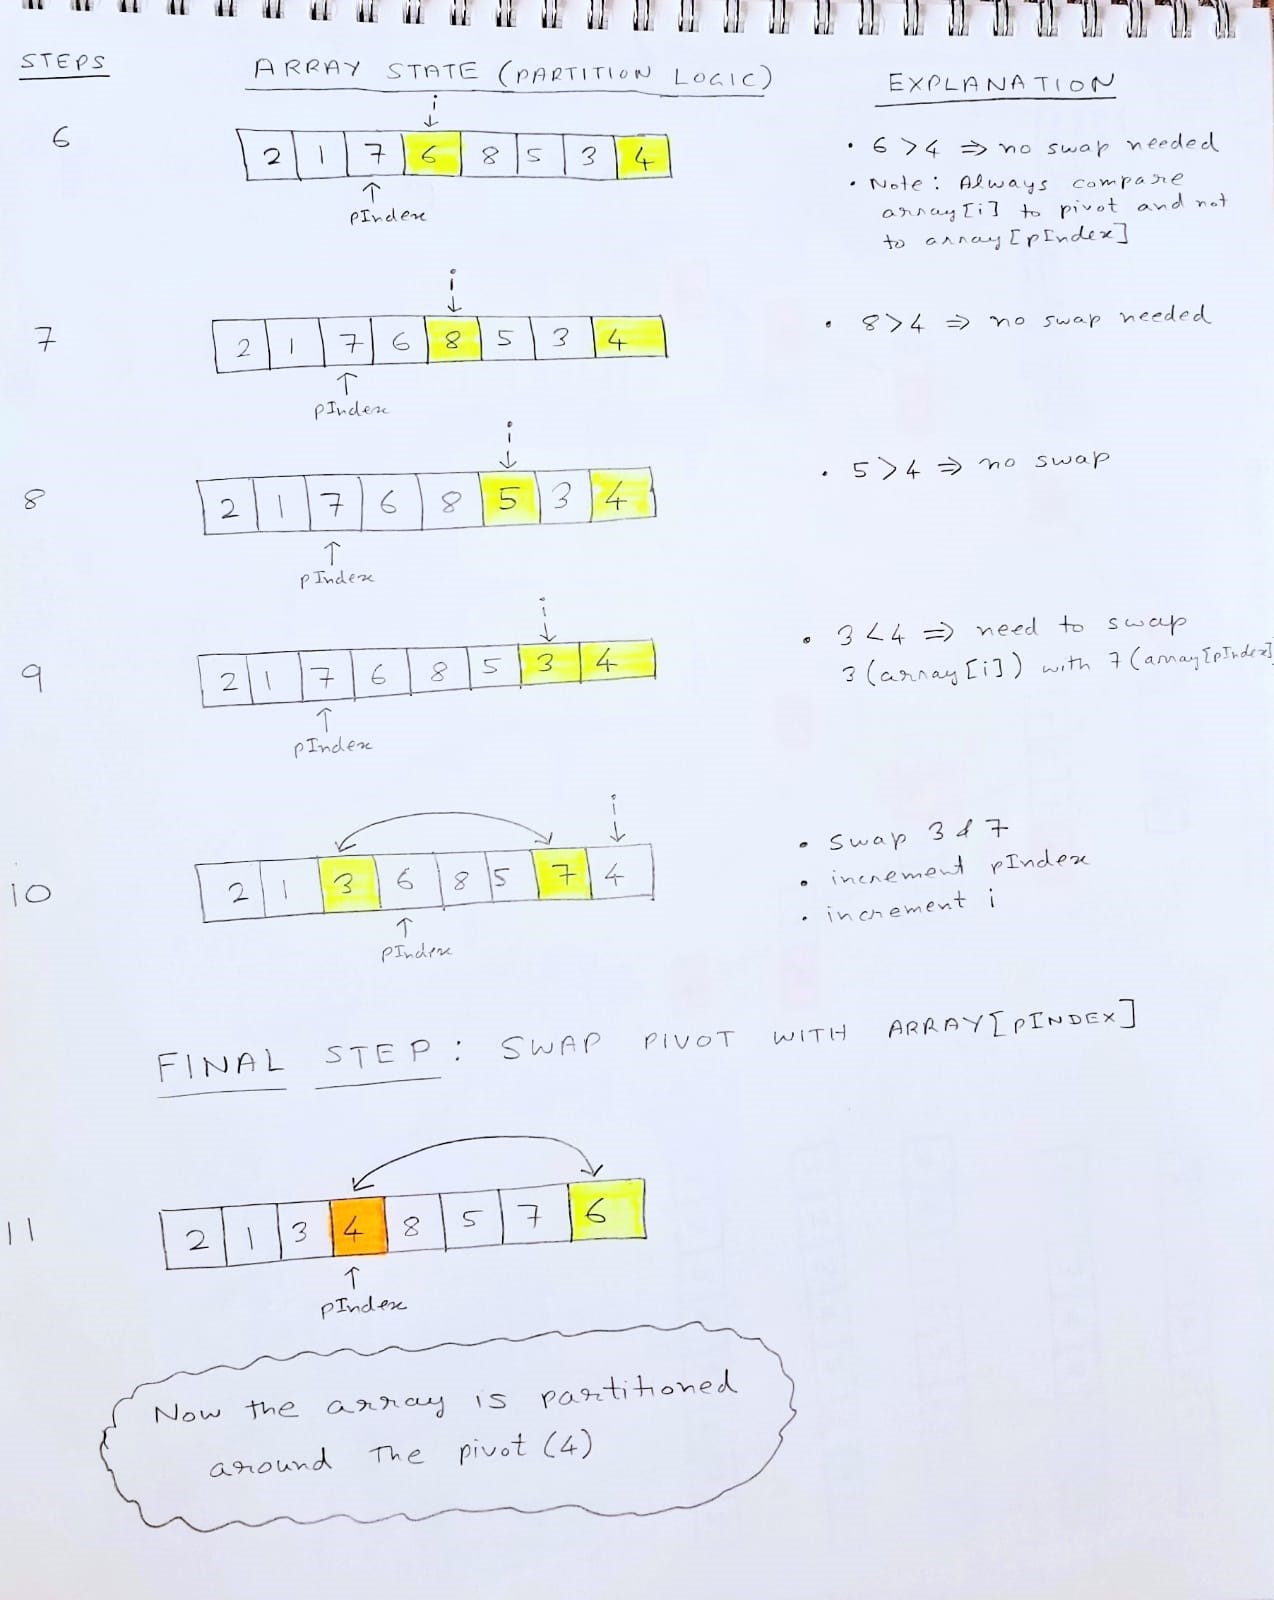 STEPS ARRAY STATE (PARTITION LOGIC) EXPLANATION
i
6 2 1 7 6 8 5 3 4 • 6 > 4 ⇒ no swap needed
pIndex • Note: Always compare
array[i] to pivot and not
to array[pIndex]
i
7 2 1 7 6 8 5 3 4 • 8 > 4 ⇒ no swap needed
pIndex
i
8 2 1 7 6 8 5 3 4 • 5 > 4 ⇒ no swap
pIndex
i
9 2 1 7 6 8 5 3 4 • 3 < 4 ⇒ need to swap
3 (array[i]) with 7 (array[pIndex]
pIndex
i
10 2 1 3 6 8 5 7 4 • swap 3 & 7
• increment pIndex
pIndex • increment i
FINAL STEP: SWAP PIVOT WITH ARRAY[PINDEX]
11 2 1 3 4 8 5 7 6
pIndex
Now the array is partitioned
around the pivot (4)